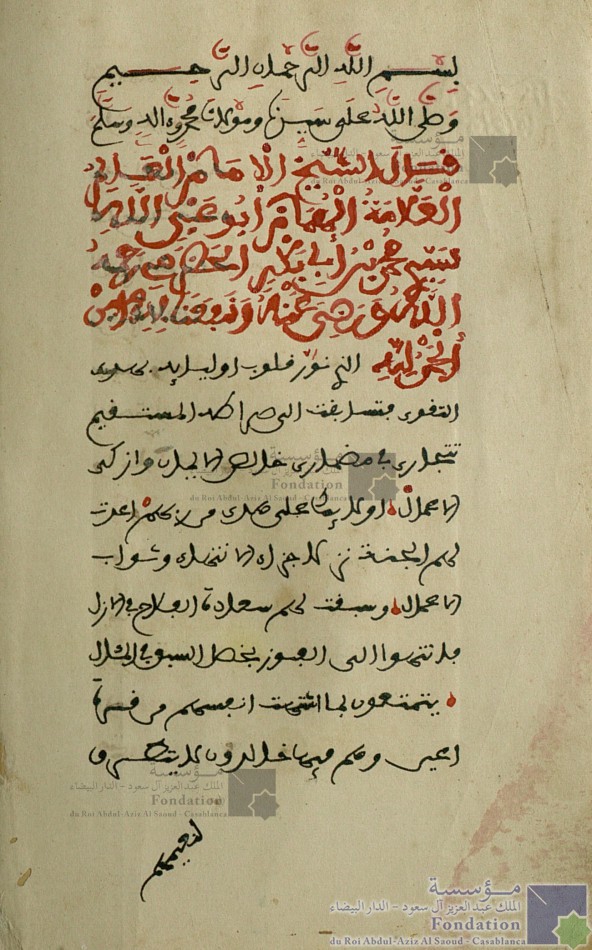 بسم الله الرحمان الرحيم
وصلى الله على سيدنا ومولانا محمد وءاله وسلم
قال الشيخ الامام
العلامة الهمام أبو عبد الله
سيدي محمد بن أبي بكر
الله ورضي عنه ونفعنا به ءامين
الحمد لله الذي نور قلوب اوليايه
التقوى فتسابقت الى صراطه المستقيم
تتجارى في مضمارى خالص الايمان وازكى
الاعمال اوليك على هدى من ربهم اعدت
لهم الجنة نزلا جزاء الامتثال وثواب
الاعمال وسبقت لهم سعادة الفلاح في الازل
فانتهوا الى الفوز بخصل السبق في المثال
يتمتعون بما اشتهت انفسهم من قرة
اعين وهم فيها خالدون لا
لنعيمهم
مؤسسة
الملك عبد العزيز آل سعود - الدار البيضاء
Fondation
du Roi Abdul-Aziz Al Saoud - Casablanca